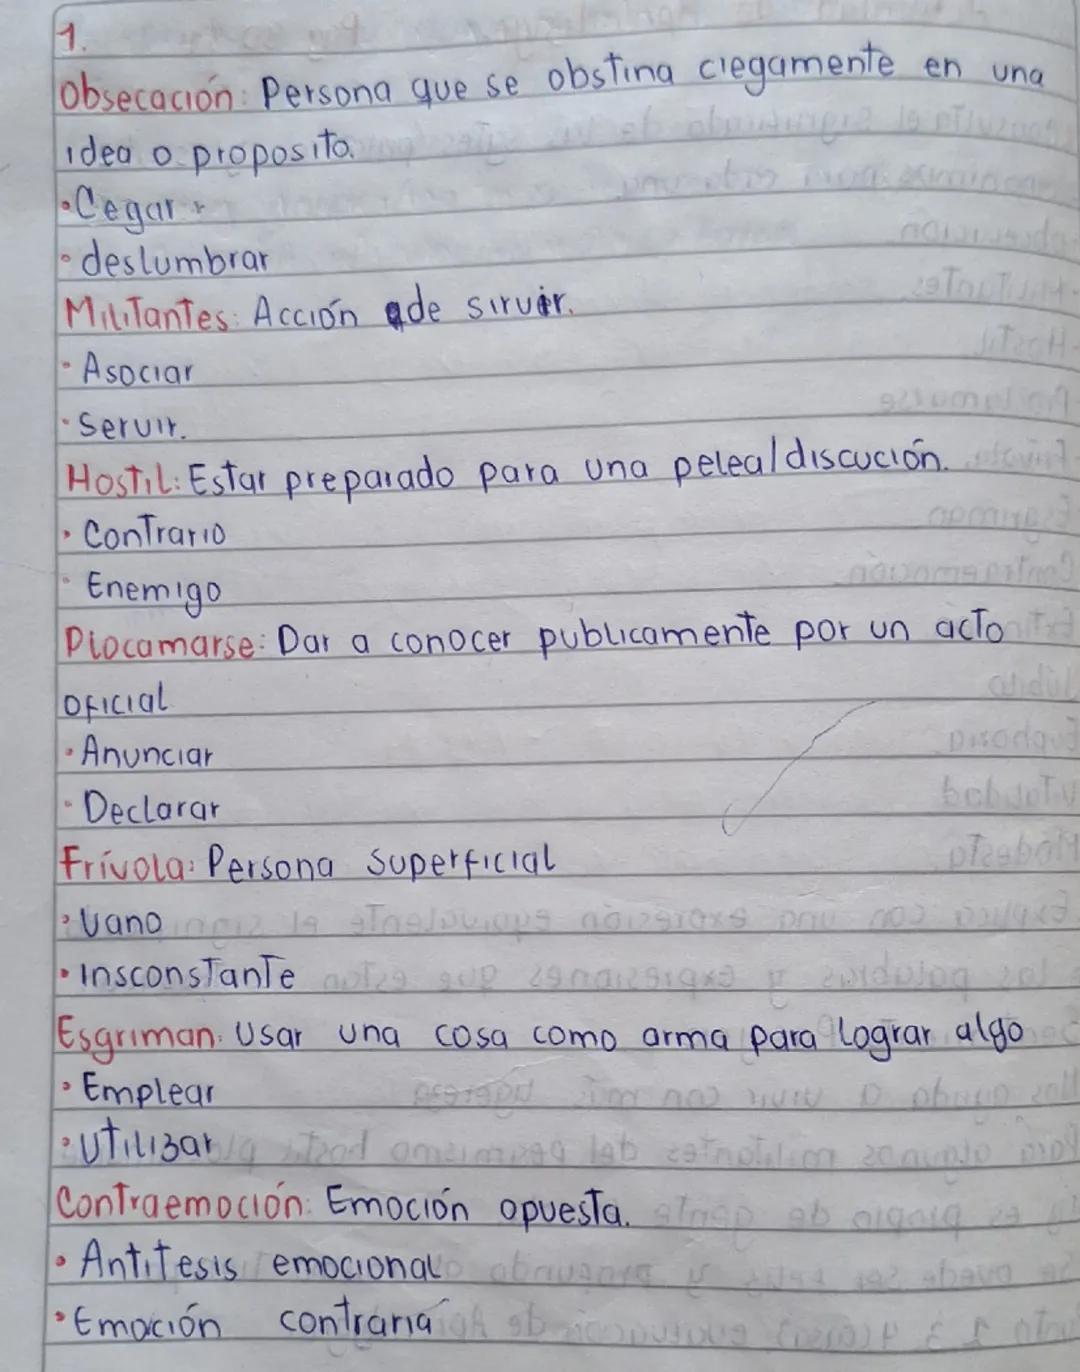 1.
Obsecación: Persona que se obstina ciegamente en una
idea o proposito.
• Cegar
• deslumbrar
Militantes: Acción de sirvir.
• Asociar
• Servir.
Hostil: Estar preparado para una pelea/discución.
• Contrario
• Enemigo
Plocamarse: Dar a conocer publicamente por un acto
oficial
• Anunciar
• Declarar
Frívola: Persona superficial
• Vano
• Insconstante
Esgriman: Usar una cosa como arma para lograr algo
• Emplear
• Utilizar
Contraemoción: Emoción opuesta.
• Antitesis emocional
• Emoción contraria